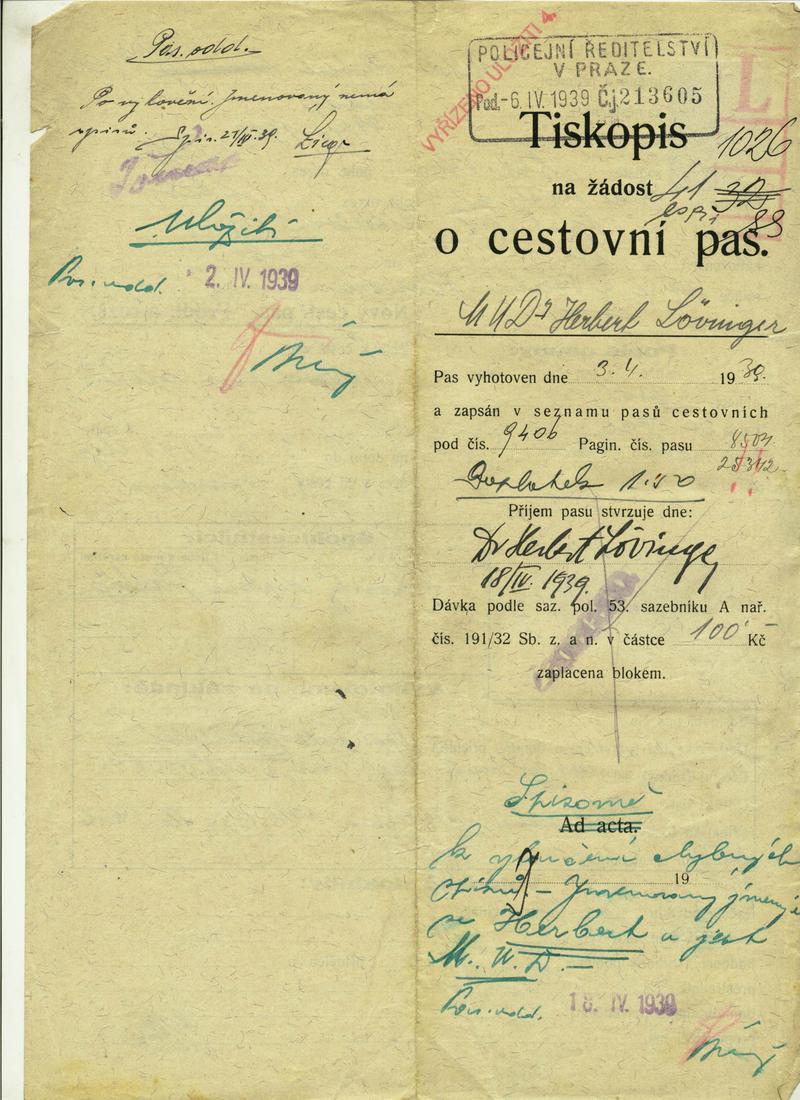 Pas. odd.
Po vyloučení. Jmenovaný nemá
spisů. 21/IV. 39.
Uložiti
Pas. odd. 2. IV. 1939
POLICEJNÍ ŘEDITELSTVÍ
V PRAZE.
Pod.-6. IV. 1939 Č.j. 213605
VYŘÍZENO
L
Tiskopis 1026
na žádost 41 32
33
o cestovní pas.
MUDr Herbert Lövinger
Pas vyhotoven dne 3. 4. 1939.
a zapsán v seznamu pasů cestovních
pod čís. 9406 Pagin. čís. pasu 8504
25342
Doplatek 1.50
Příjem pasu stvrzuje dne:
Dr Herbert Lövinger
18/IV. 1939.
Dávka podle saz. pol. 53. sazebníku A nař.
čís. 191/32 Sb. z. a n. v částce 100 Kč
zaplacena blokem.
Spisovně
Ad acta.
k vyloučení chybných
19
Jmenovaný jmenuje
se Herbert a jest
M. U. D. –
Pas. odd. 18. IV. 1939